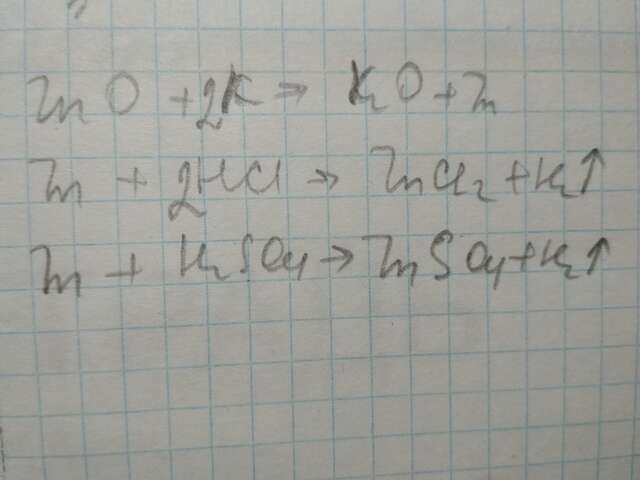 ZnO + 2K → K₂O + Zn
Zn + 2HCl → ZnCl₂ + H₂↑
Zn + H₂SO₄ → ZnSO₄ + H₂↑